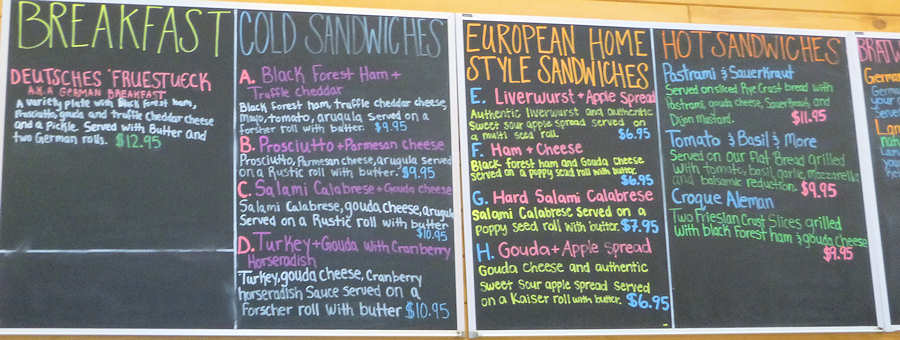 BREAKFAST
DEUTSCHES FRUESTUECK
A.K.A GERMAN BREAKFAST
A variety plate with Black forest ham,
Prosciutto, gouda and truffle Cheddar cheese
and a Pickle. Served with Butter and
two German rolls. $12.95
COLD SANDWICHES
A. Black Forest Ham +
Truffle cheddar
Black forest ham, truffle cheddar cheese,
mayo, tomato, arugula served on a
forsher roll with butter. $9.95
B. Prosciutto + Parmesan cheese
Prosciutto, Parmesan cheese, arugula served
on a Rustic roll with butter. $9.95
C. Salami Calabrese + Gouda cheese
Salami Calabrese, gouda cheese, arugula
Served on a Rustic roll with butter
$10.95
D. Turkey + Gouda with Cranberry
Horseradish
Turkey, gouda cheese, Cranberry
horseradish Sauce served on a
Forscher roll with butter $10.95
EUROPEAN HOME
STYLE SANDWICHES
E. Liverwurst + Apple Spread
Authentic liverwurst and authentic
Sweet sour apple spread served on
a multi seed roll. $6.95
F. Ham + Cheese
Black forest ham and Gouda cheese
served on a poppy seed roll with butter.
$6.95
G. Hard Salami Calabrese
Salami Calabrese Served on a
poppy seed roll with butter. $7.95
H. Gouda + Apple Spread
Gouda cheese and authentic
sweet sour apple spread served
on a Kaiser roll with butter. $6.95
HOT SANDWICHES
Pastrami & Sauerkraut
Served on sliced Rye Crust bread with
Pastrami, gouda cheese, Sauerkraut, and
Dijon mustard. $11.95
Tomato & Basil & More
Served on our Flat Bread grilled
with tomato, basil, garlic, mozzarella
and balsamic reduction. $9.95
Croque Aleman
Two Friesian Crust Slices grilled
with black Forest ham & gouda cheese
$9.95
BRATW
German
Germ
your
Serve